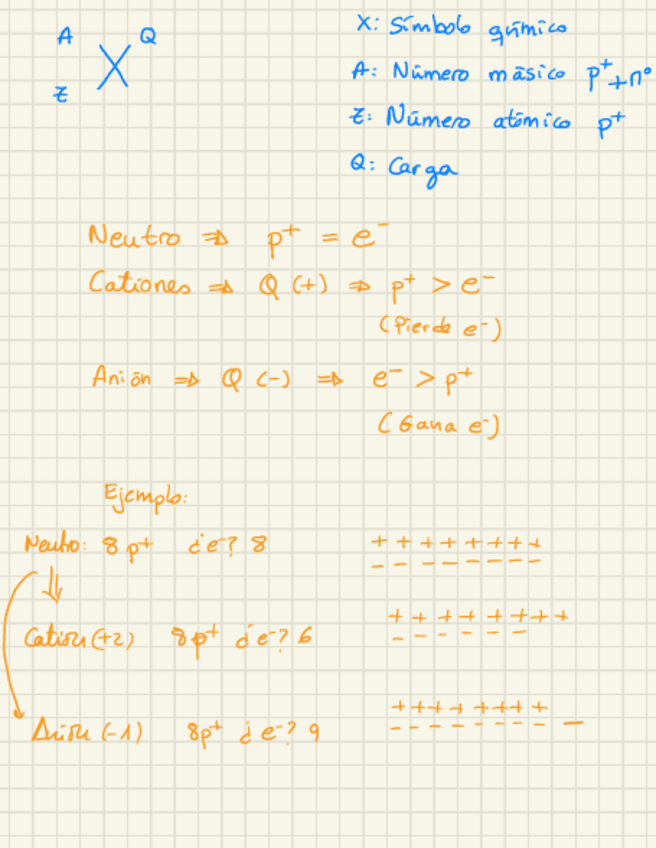 A Q
X
Z
X: Símbolo químico
A: Número másico p⁺+n°
Z: Número atómico p⁺
Q: Carga
Neutro ⇒ p⁺ = e⁻
Cationes ⇒ Q (+) ⇒ p⁺ > e⁻
(Pierde e⁻)
Anión ⇒ Q (-) ⇒ e⁻ > p⁺
(Gana e⁻)
Ejemplo:
Neutro: 8 p⁺ ¿e⁻? 8 + + + + + + + +
− − − − − − − −
⇓
Catión (+2) 8p⁺ ¿e⁻? 6 + + + + + + + +
− − − − − −
Anión (-1) 8p⁺ ¿e⁻? 9 + + + + + + + +
− − − − − − − − −